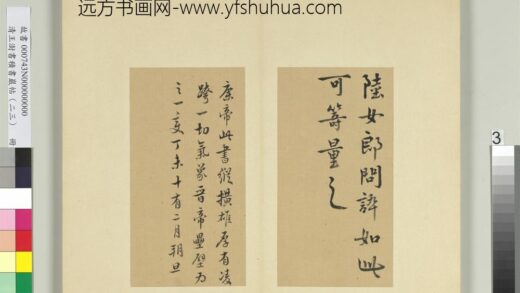 远方书画网-www.yfshuhua.com
故書000743N000000000
清王澍積書巖帖(二三) 冊
陸女郎問許如此
可等量之
康帝此書縱橫雄厚有凌
跨一切氣象晉帝壘壁為
之一變丁未十有二月朔旦
3